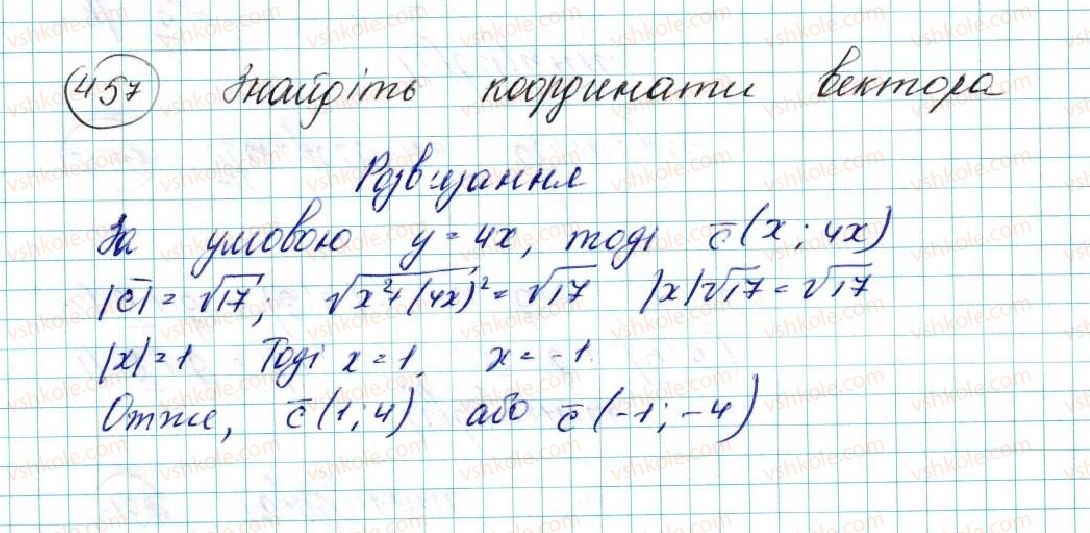 457 Знайдіть координати вектора
Розв'язання
За умовою y = 4x, тоді c̄ (x ; 4x)
|c̄| = √17; √x² + (4x)² = √17 |x|√17 = √17
|x| = 1 Тоді x = 1. x = -1.
Отже, c̄ (1; 4) або c̄ (-1; -4)
vshkole.com